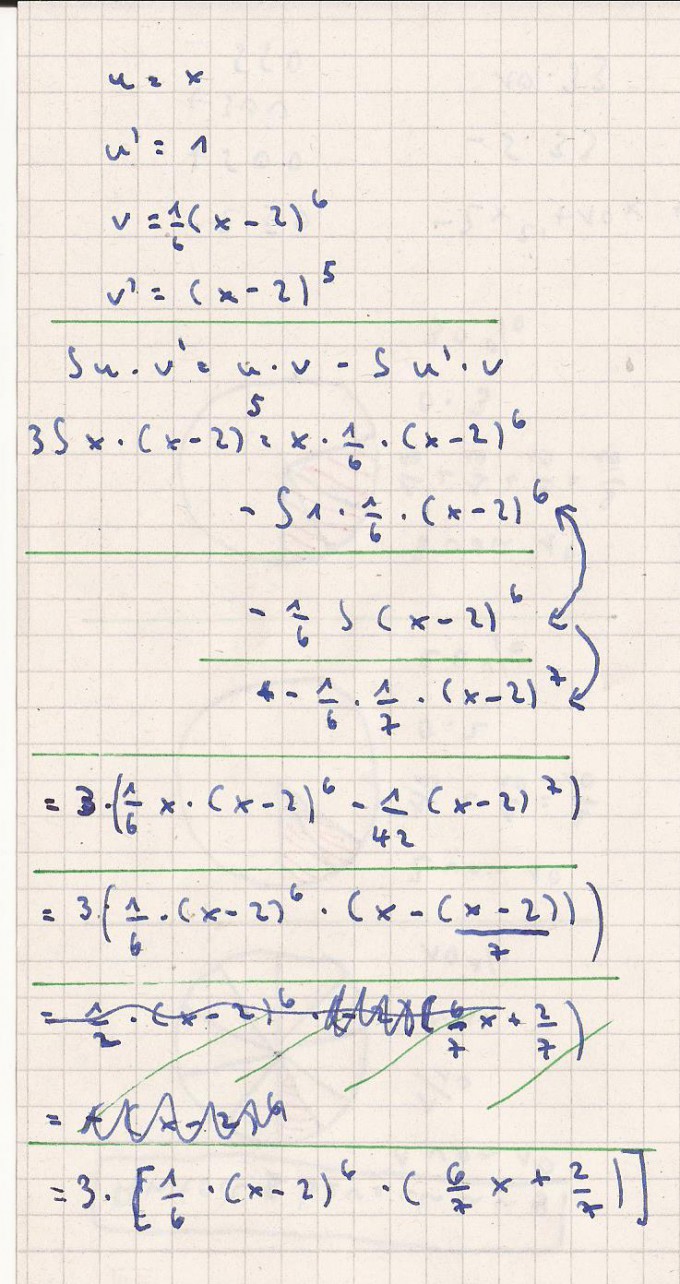 u = x
u' = 1
v = 1/6 (x - 2)^6
v' = (x - 2)^5
∫ u · v' = u · v - ∫ u' · v
3 ∫ x · (x - 2)^5 = x · 1/6 · (x - 2)^6
- ∫ 1 · 1/6 · (x - 2)^6
- 1/6 ∫ (x - 2)^6
- 1/6 · 1/7 · (x - 2)^7
= 3 · (1/6 x · (x - 2)^6 - 1/42 (x - 2)^7)
= 3 · (1/6 · (x - 2)^6 · (x - (x - 2)/7))
= 1/2 · (x - 2)^6 · ( 6/7 x + 2/7 )
=
= 3 · [1/6 · (x - 2)^6 · (6/7 x + 2/7)]